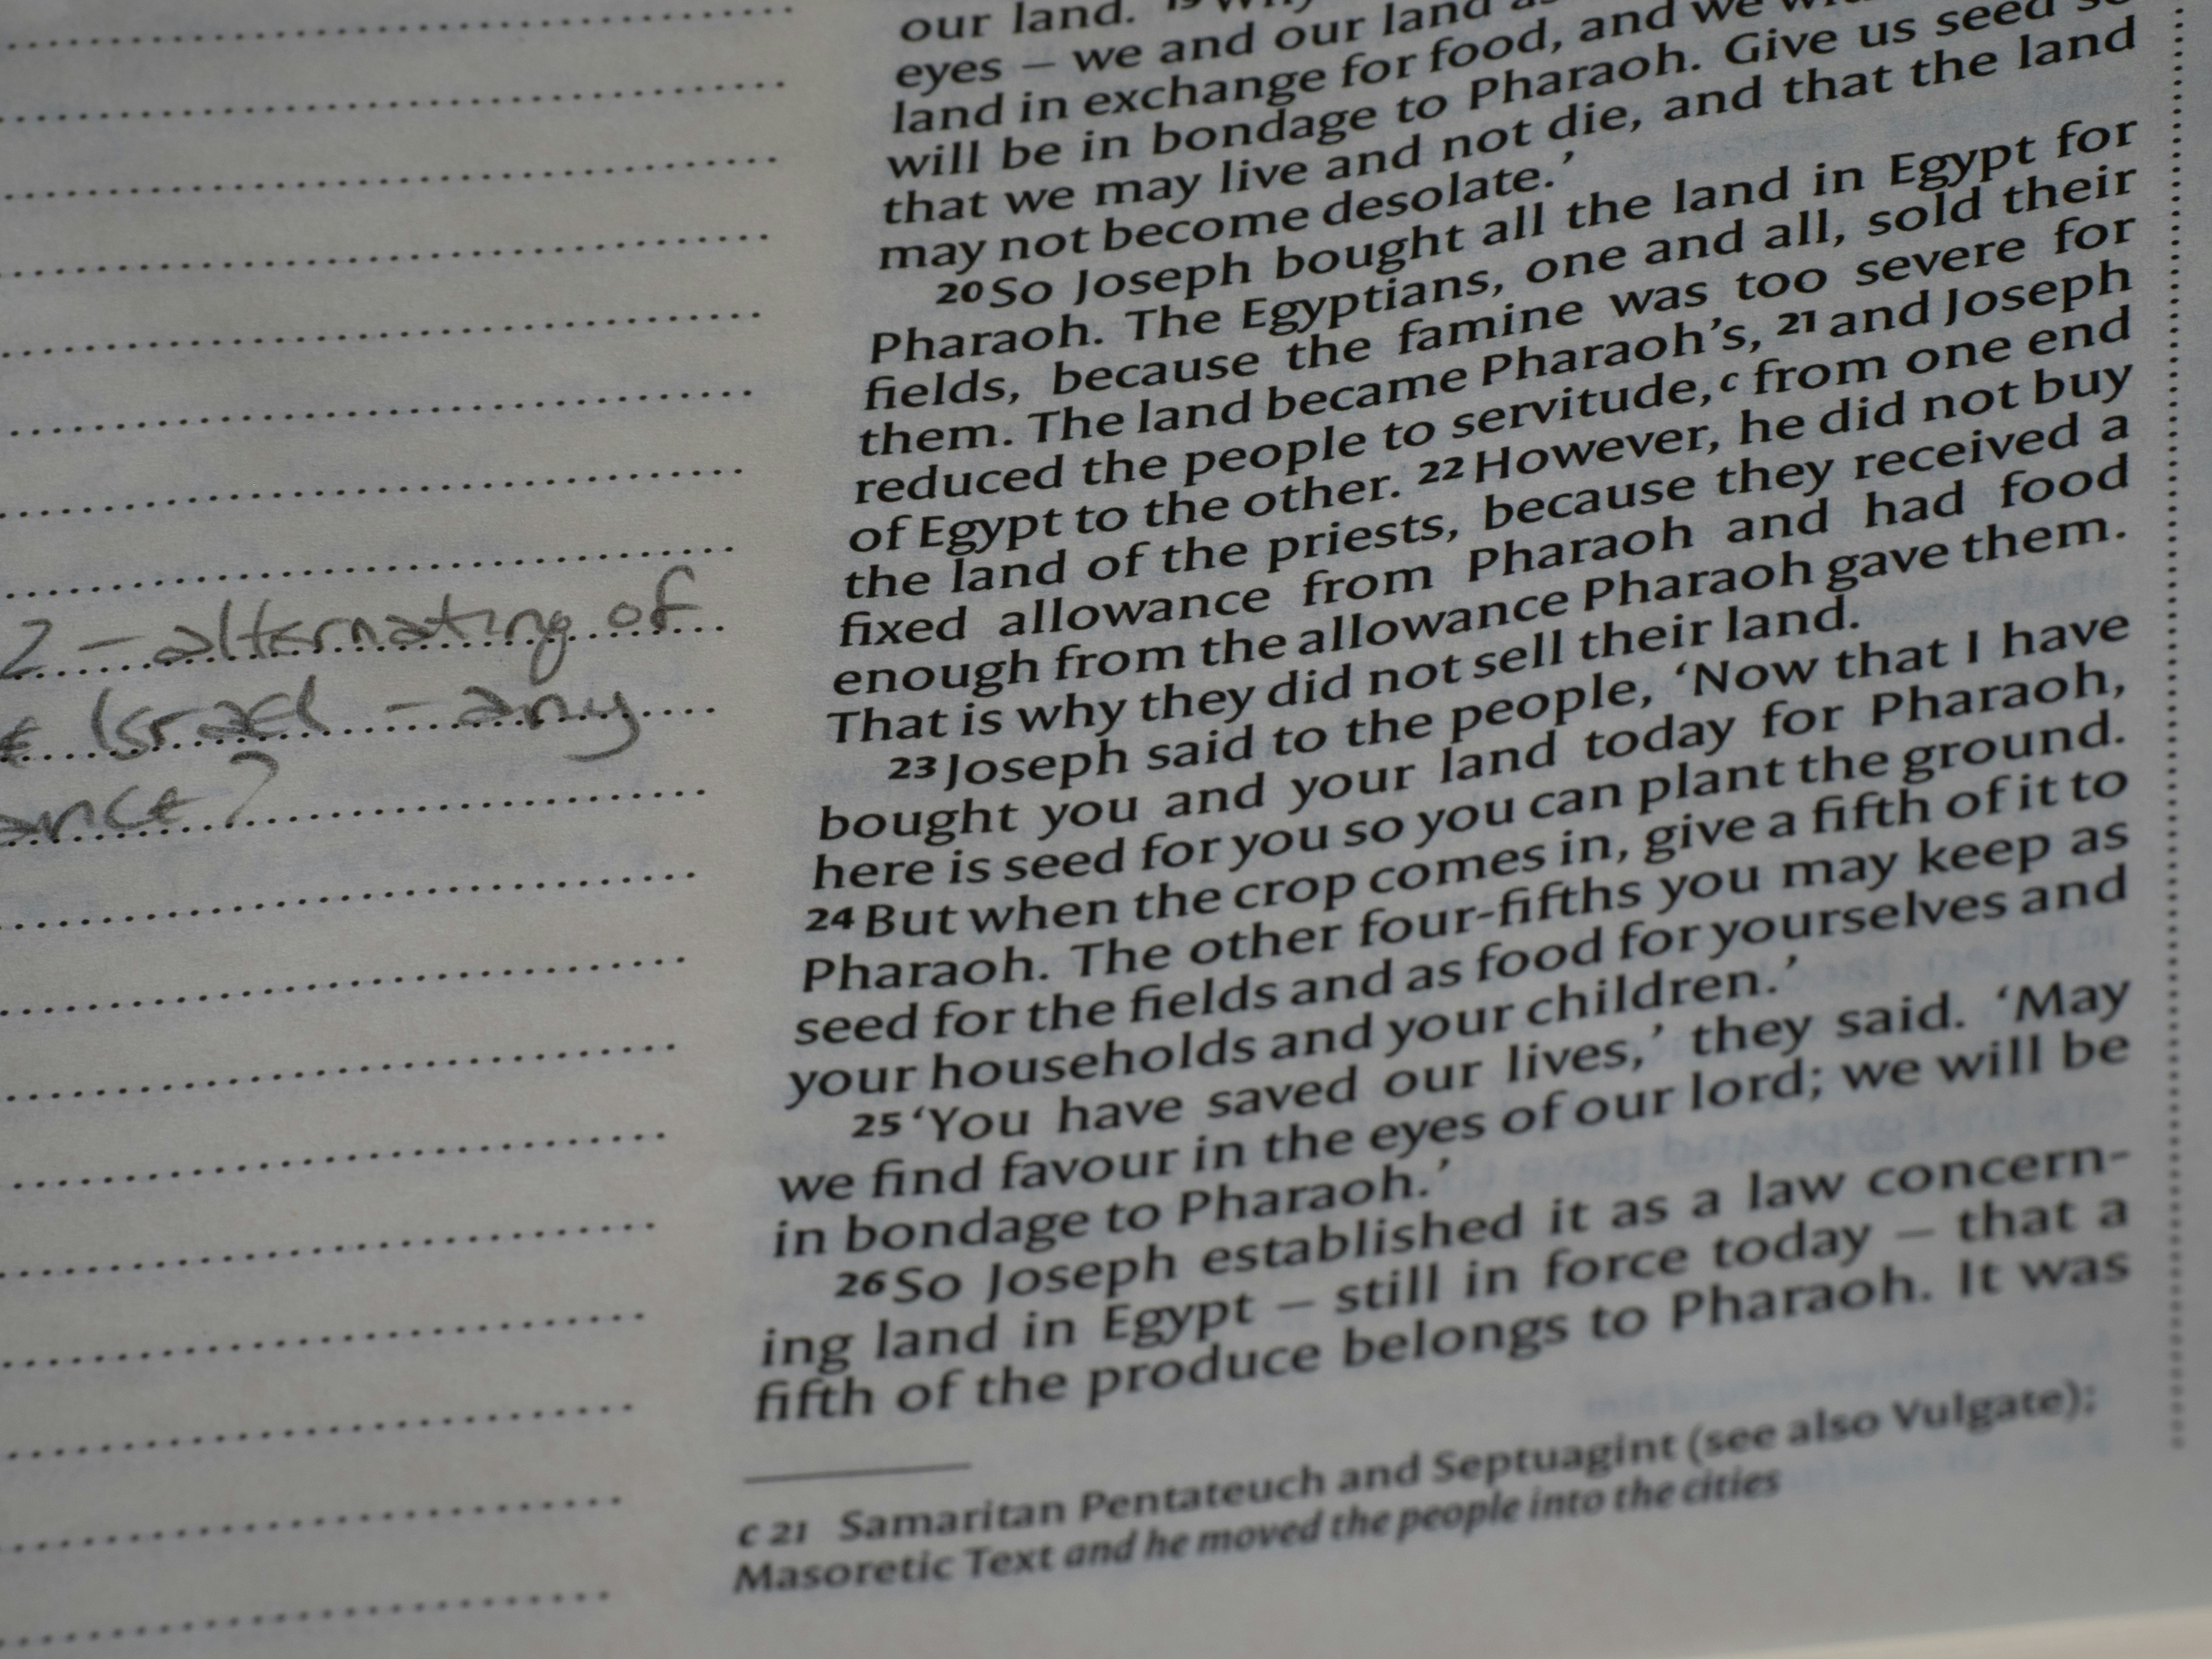 2 – alternating of
Israel – any
ance?
our land. 19
eyes – we and our land
land in exchange for food, and we
will be in bondage to Pharaoh. Give us seed so
that we may live and not die, and that the land
may not become desolate.’
20 So Joseph bought all the land in Egypt for
Pharaoh. The Egyptians, one and all, sold their
fields, because the famine was too severe for
them. The land became Pharaoh’s, 21 and Joseph
reduced the people to servitude,c from one end
of Egypt to the other. 22 However, he did not buy
the land of the priests, because they received a
fixed allowance from Pharaoh and had food
enough from the allowance Pharaoh gave them.
That is why they did not sell their land.
23 Joseph said to the people, ‘Now that I have
bought you and your land today for Pharaoh,
here is seed for you so you can plant the ground.
24 But when the crop comes in, give a fifth of it to
Pharaoh. The other four-fifths you may keep as
seed for the fields and as food for yourselves and
your households and your children.’
25 ‘You have saved our lives,’ they said. ‘May
we find favour in the eyes of our lord; we will be
in bondage to Pharaoh.’
26 So Joseph established it as a law concern-
ing land in Egypt – still in force today – that a
fifth of the produce belongs to Pharaoh. It was
c 21 Samaritan Pentateuch and Septuagint (see also Vulgate);
Masoretic Text and he moved the people into the cities